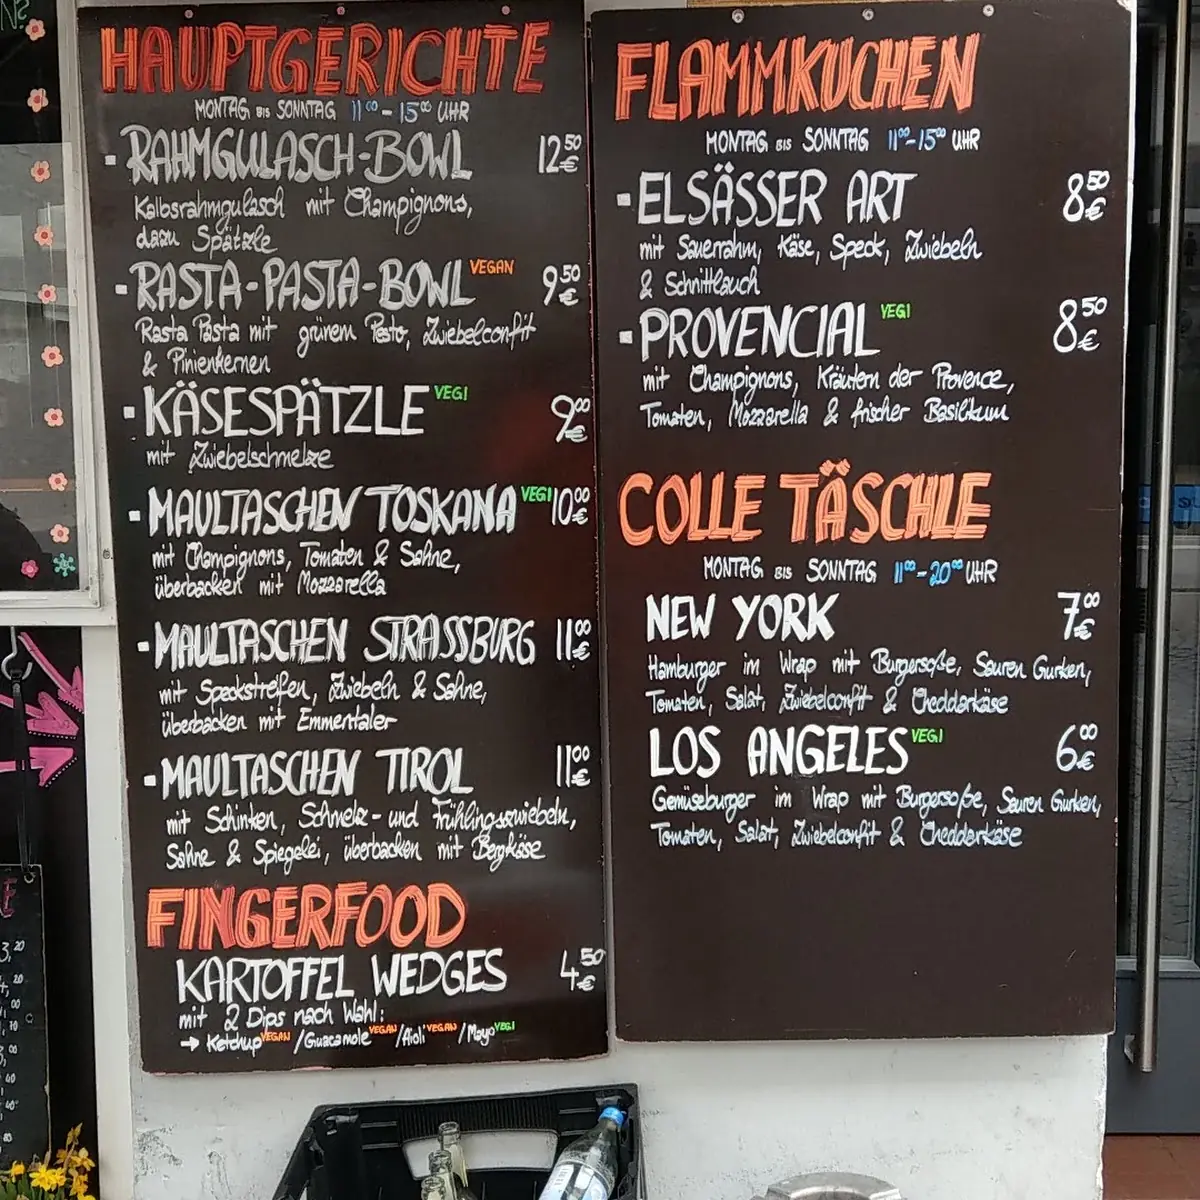 HAUPTGERICHTE
MONTAG BIS SONNTAG 11⁰⁰-15⁰⁰ UHR
- RAHMGULASCH-BOWL 12⁵⁰ €
Kalbsrahmgulasch mit Champignons,
dazu Spätzle
- RASTA-PASTA-BOWL VEGAN 9⁵⁰ €
Rasta Pasta mit grünem Pesto, Zwiebelconfit
& Pinienkernen
- KÄSESPÄTZLE VEGI 9⁰⁰ €
mit Zwiebelschmelze
- MAULTASCHEN TOSKANA VEGI 10⁰⁰ €
mit Champignons, Tomaten & Sahne,
überbacken mit Mozzarella
- MAULTASCHEN STRASSBURG 11⁰⁰ €
mit Speckstreifen, Zwiebeln & Sahne,
überbacken mit Emmentaler
- MAULTASCHEN TIROL 11⁰⁰ €
mit Schinken, Schmelz- und Frühlingszwiebeln,
Sahne & Spiegelei, überbacken mit Bergkäse
FINGERFOOD
KARTOFFEL WEDGES 4⁵⁰ €
mit 2 Dips nach Wahl:
→ Ketchup VEGAN / Guacamole VEGAN / Aioli VEGAN / Mayo VEGI
FLAMMKUCHEN
MONTAG BIS SONNTAG 11⁰⁰-15⁰⁰ UHR
- ELSÄSSER ART 8⁵⁰ €
mit Sauerrahm, Käse, Speck, Zwiebeln
& Schnittlauch
- PROVENCIAL VEGI 8⁵⁰ €
mit Champignons, Kräutern der Provence,
Tomaten, Mozzarella & frischer Basilikum
COLLE TÄSCHLE
MONTAG BIS SONNTAG 11⁰⁰-20⁰⁰ UHR
NEW YORK 7⁰⁰ €
Hamburger im Wrap mit Burgersoße, Sauren Gurken,
Tomaten, Salat, Zwiebelconfit & Cheddarkäse
LOS ANGELES VEGI 6⁰⁰ €
Gemüseburger im Wrap mit Burgersoße, Sauren Gurken,
Tomaten, Salat, Zwiebelconfit & Cheddarkäse